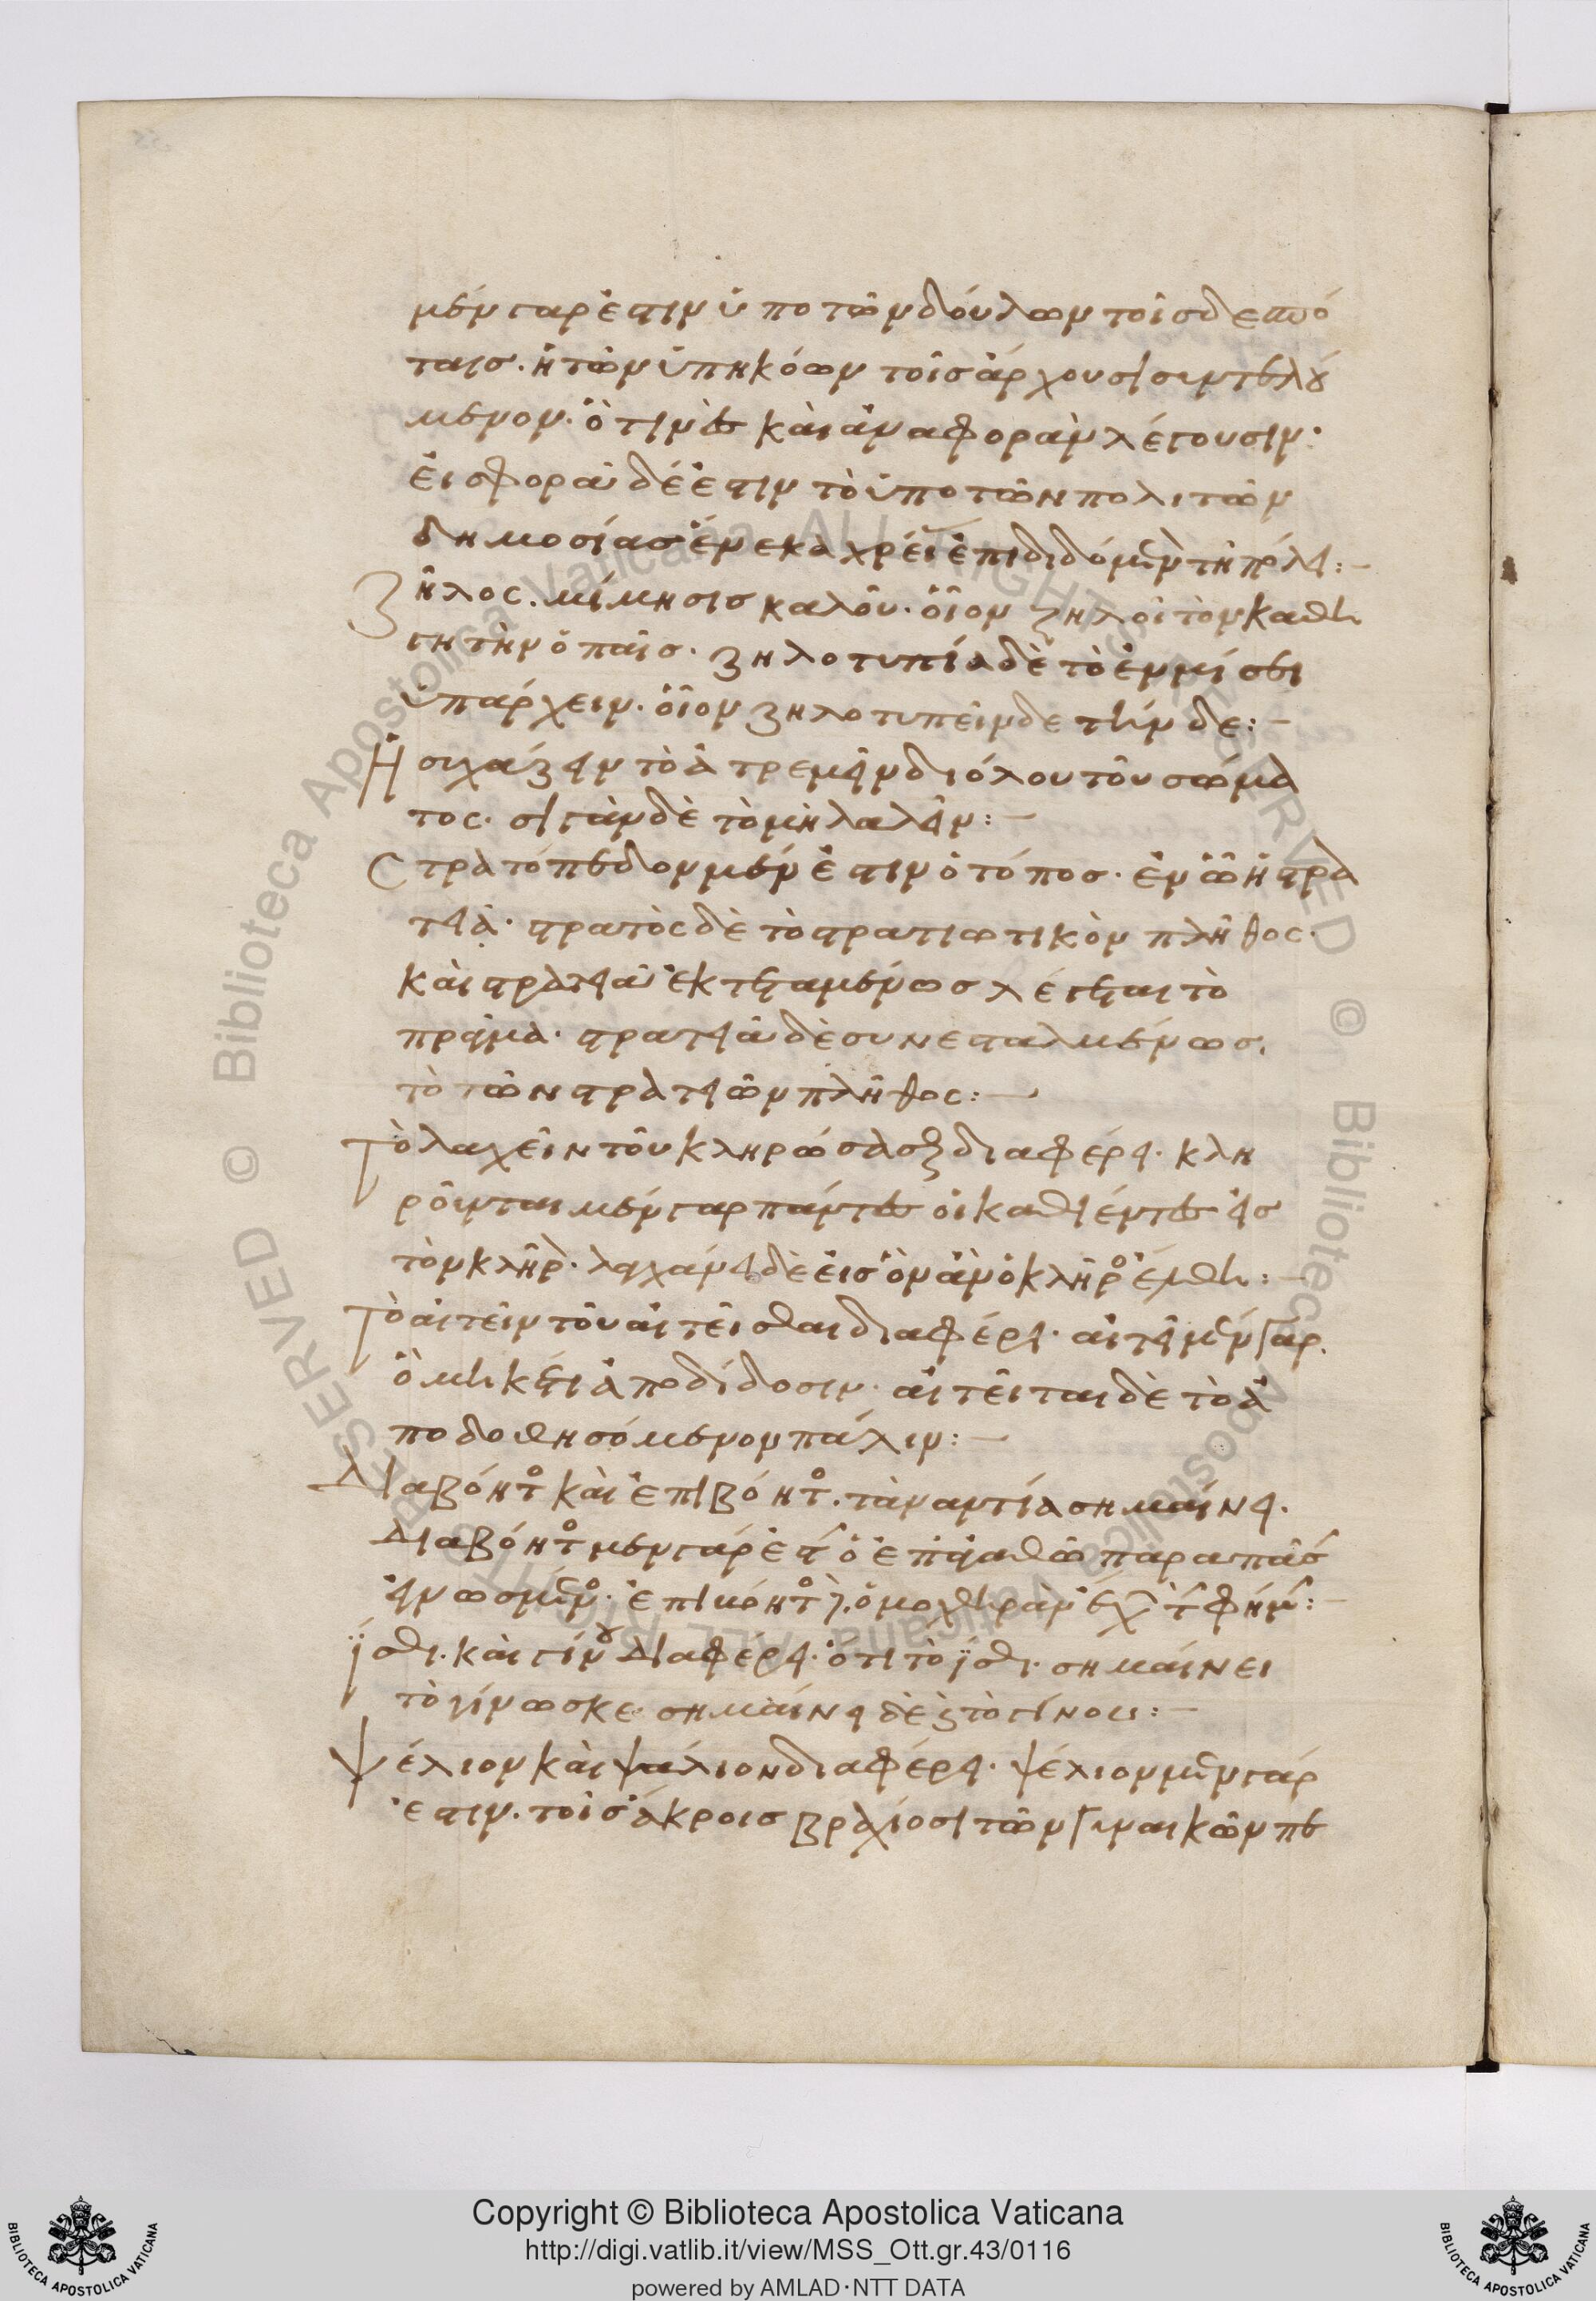 μέν γαρ ἐστιν ὑπο τῶν δούλων τοῖσ δεσπό
ταισ. ἢ τῶν ὑπηκόων τοῖσ ἄρχουσι συντελού
μενον. ὅ τινὲσ καὶ ἀναφορὰν λέγουσιν.
εἰσφορὰ δέ ἐστιν τὸ ὑπο τῶν πολιτῶν
δημοσίασ ἕνεκα χρείασ ἐπιδιδόμενον τῆ πόλει:–
Ζῆλος. μίμησισ καλοῦ. οἷον ζηλοῖ τὸν καθη
γητὴν ὁ παῖσ. ζηλοτυπία δὲ τὸ ἐν μίσει
ὑπάρχειν. οἷον ζηλοτυπεῖν δε τήνδε:–
Ἡσυχάζειν τὸ ἀτρεμεῖν διόλου τοῦ σώμα
τος. σιγὰν δὲ τὸ μὴ λαλεῖν:–
Στρατόπεδον μέν ἐστιν ὁ τόποσ. ἐν ὧ ἡ στρα
τεία. στρατὸς δὲ τὸ στρατιωτικὸν πλῆθος.
καὶ στρατεία ἐκτεταμένωσ λέγεται τὸ
πρᾶγμα. στρατιὰ δὲ συνεσταλμένωσ.
τὸ τῶν στρατιῶν πλῆθος:–
Τὸ λαχεῖν τοῦ κληρώσασθαι διαφέρει. κλη
ροῦνται μέν γαρ πάντεσ οἱ καθιέντεσ εἰσ
τὸν κλῆρον. λαγχάνει δὲ εἷσ ὃν ἂν ὁ κλῆρος ἔλθη:–
Τὸ αἰτεῖν τοῦ αἰτεῖσθαι διαφέρει. αἰτεῖ μὲν γάρ.
ὃ μηκέτι ἀποδίδοσιν. αἰτεῖται δὲ τὸ ἀ
ποδοθησόμενον πάλιν:–
Διαβόητος καὶ ἐπιβόητος. τἀναντία σημαίνει.
Διαβόητος μεν γάρ ἐστιν ὁ ἐπ' ἀγαθῶ παρα πᾶσιν
ἐγνωσμένος. ἐπιβόητος δὲ ὁ μοχθηρὰν ἔχων τὴν φήμην:–
ἴσθι. καὶ γίνου διαφέρει. ὅτι τὸ ἴσθι. σημαίνει
τὸ γίνωσκε. σημαίνει δὲ καὶ τὸ γίνου:–
Ψέλιον καὶ ψάλιον διαφέρει. ψέλιον μὲν γάρ
ἐστιν. τοῖσ ἄκροισ βραχίοσι τῶν γυναικῶν πε
Copyright © Biblioteca Apostolica Vaticana
http://digi.vatlib.it/view/MSS_Ott.gr.43/0116
powered by AMLAD·NTT DATA
BIBLIOTECA APOSTOLICA VATICANA
BIBLIOTECA APOSTOLICA VATICANA